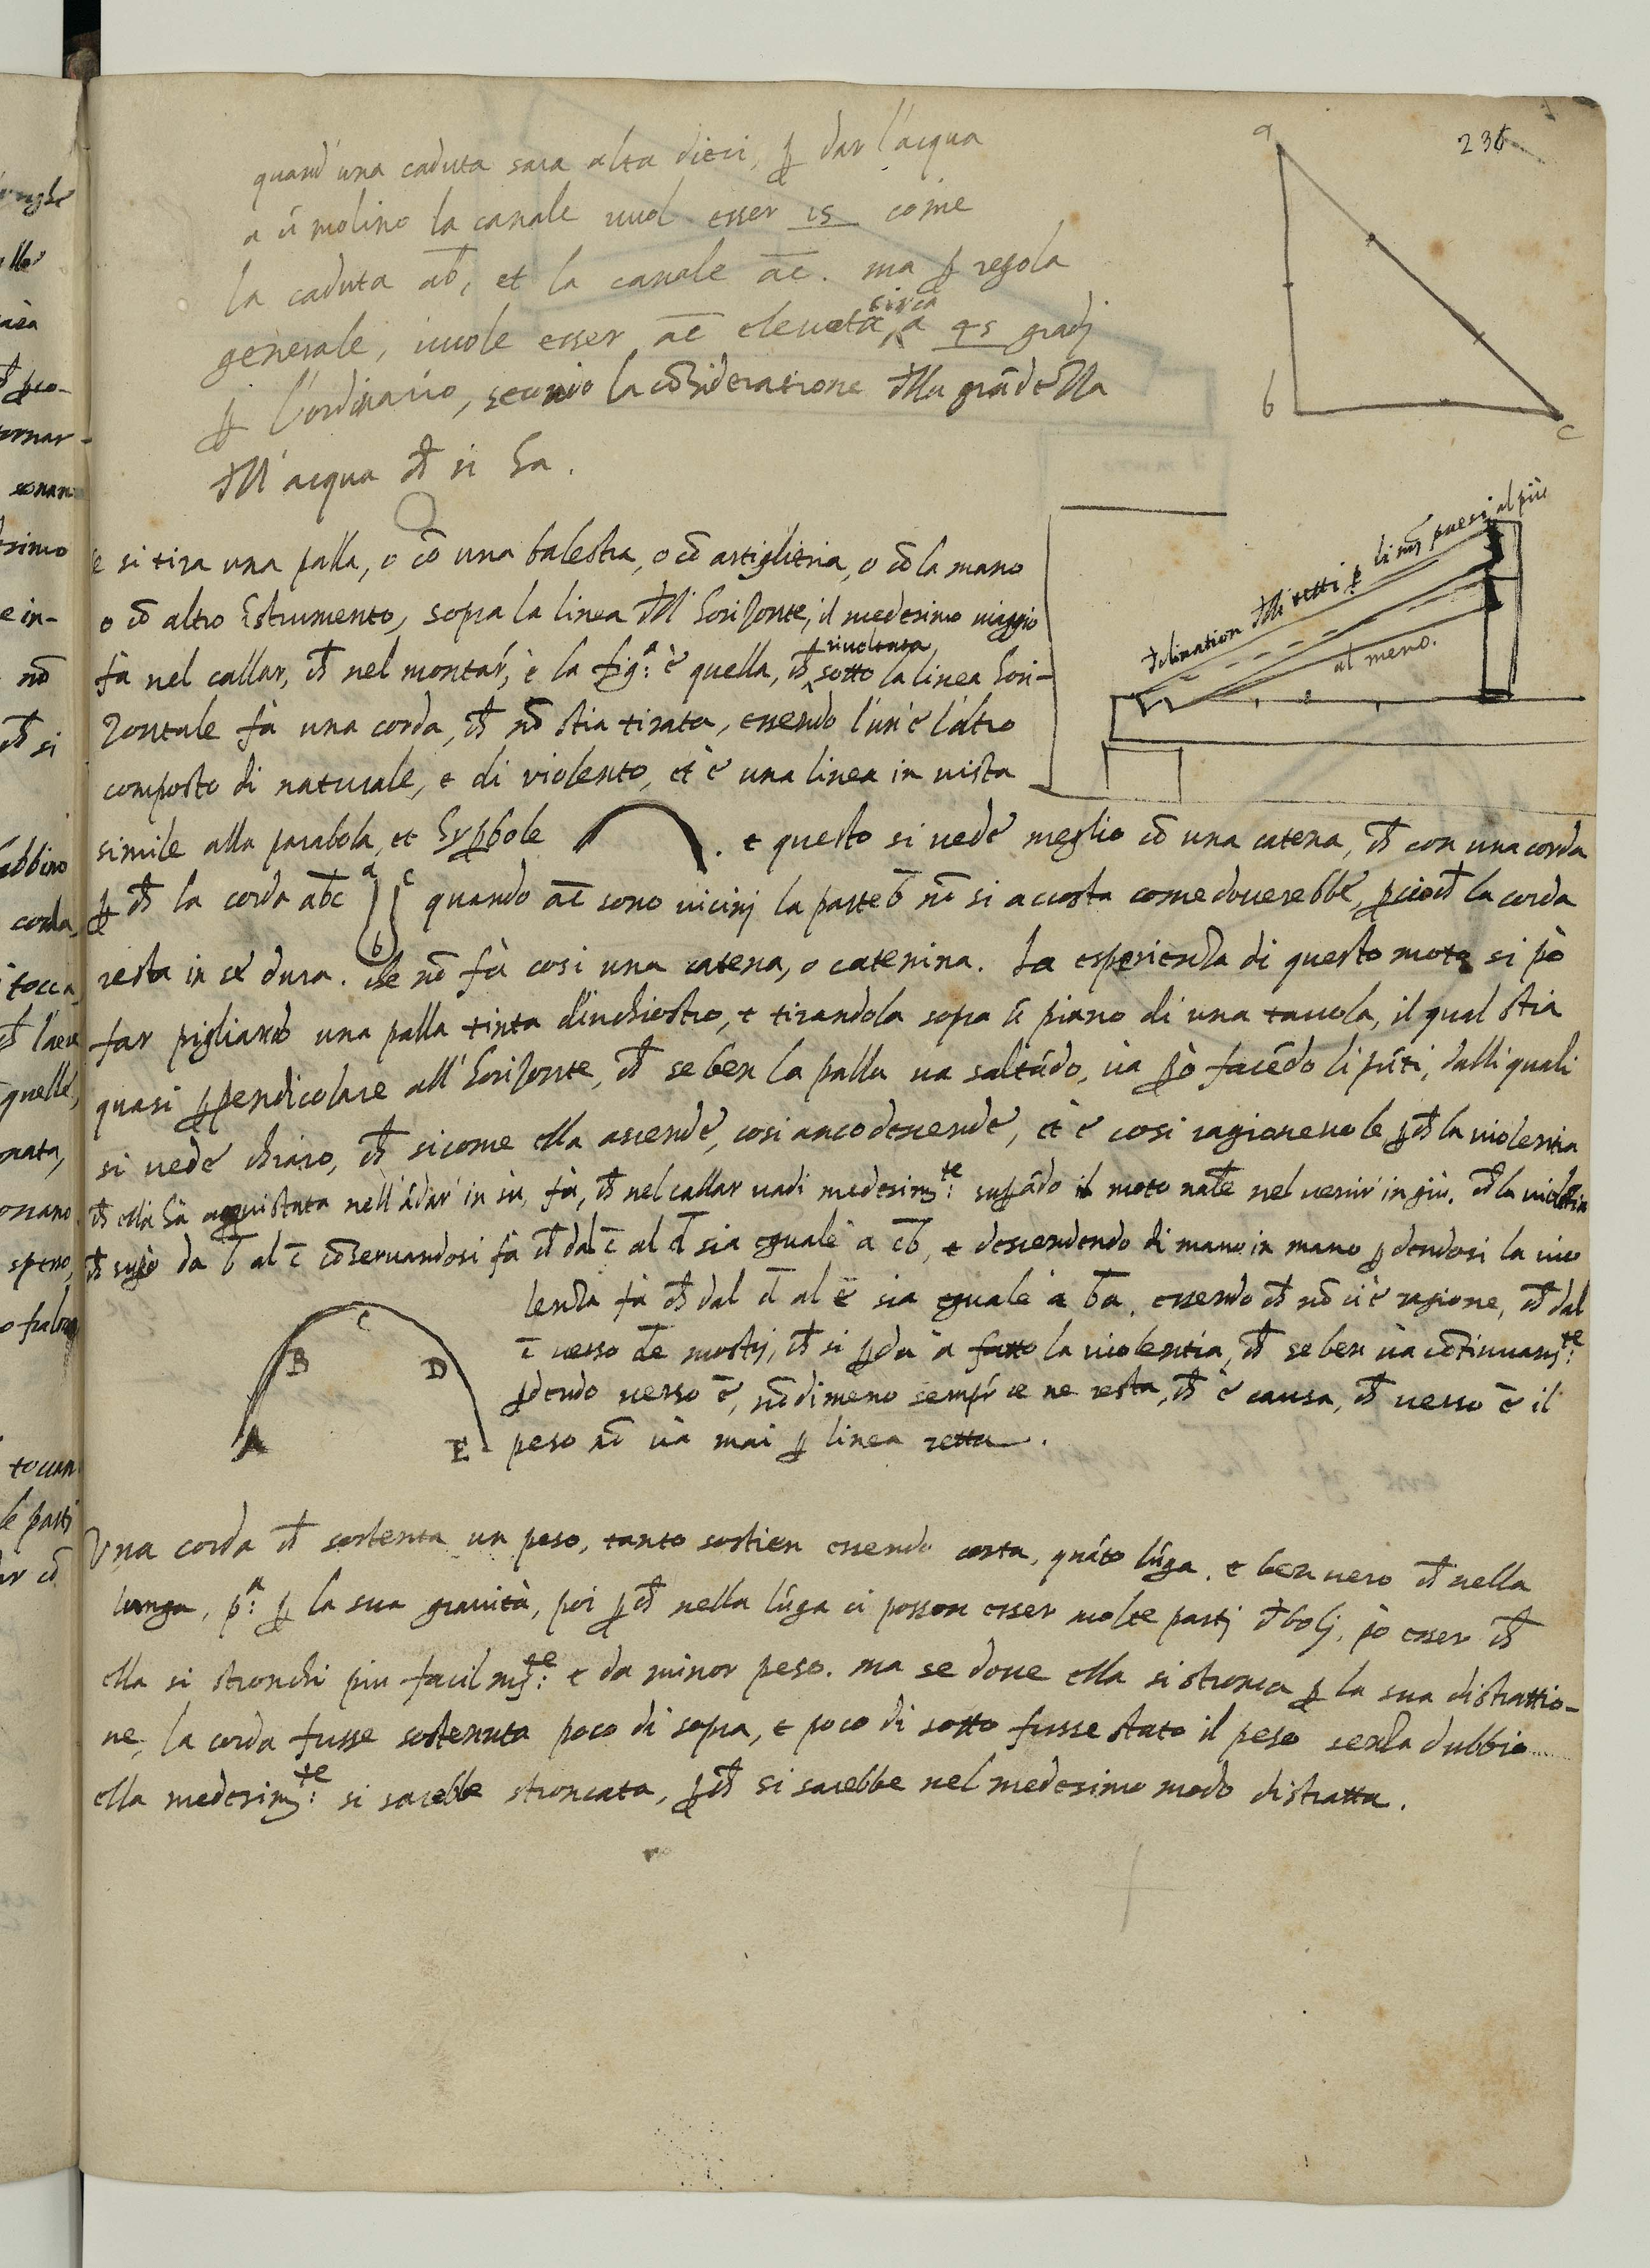 236
quand'una caduta sara alta dieci, ꝑ dar l'acqua
a ũ molino la canale vuol esser 15 come
la caduta ab, et la canale ac. ma ꝑ regola
generale, vuole esser ac elevata circa a 45 gradi
ꝑ l'ordinario, secondo la cõsideratione dlla grãdezza
dll'acqua ch si ha.
a
b
c
Se si tira una palla, o cõ una balestra, o cõ artiglieria, o cõ la mano
o cõ altro istrumento, sopra la linea dll' horizonte, il medesimo viaggio
fà nel callar, ch nel montar, e la fig.ª è quella, ch rivoltata sotto la linea hori-
zontale fà una corda, ch nõ stia tirata, essendo l'un e l'altro
composto di naturale, e di violento, et è una linea in vista
simile alla parabola, et hyꝑbole . e questo si vede meglio cõ una catena, ch con una corda
ꝑ ch la corda abc a c b quando ac sono vicinj la parte b nõ si accosta come doverebbe, ꝑcioch la corda
resta in se dura. Che nõ fà cosi una catena, o catenina. La esperienza di questo moto si pò
far pigliando una palla tinta d'inchiostro, e tirandola sopra ũ piano di una tavola, il qual stia
quasi ꝑpendicolare all'horizonte, ch se ben la palla va saltãdo, và ꝑò facẽdo li pũti, dalli quali
si vede chiaro, ch sicome ella ascende, cosi anco descende, et è cosi ragionevole ꝑch la violentia
ch ella hà acquistata nell'ãdar in sù, fà, ch nel callar vadi medesim.te suꝑãdo il moto nãle nel venir in giù. ch la violẽtia
ch suꝑò da b al c cõservandosi fà ch dal c al d sia eguale à cb, e descendendo di mano in mano ꝑdendosi la vio
lenza fà ch dal d al e sia eguale à ba. essendo ch nõ vi è ragione, ch dal
c verso de mostrj, ch si ꝑda à fatto la violentia, ch se ben và cõtinuam.te
ꝑdendo verso e, nõdimeno sempr ce ne resta, ch è causa, ch verso e il
peso nõ và mai ꝑ linea retta.
A
B
C
D
E
declination dlli tetti ꝑ li nři paesi al più
al meno.
Una corda ch sostenta un peso, tanto sostien essendo corta, quãto lũga. e ben vero ch nella
lunga, p.ª ꝑ la sua gravità, poi ꝑch nella lũga ci posson esser molte partj dbolj, pò esser ch
ella si stronchi piu facilm.te: e da minor peso. ma se dove ella si stronca ꝑ la sua distrattio-
ne, la corda fusse sostenuta poco di sopra, e poco di sotto fusse stato il peso senza dubbio
ella medesim.te: si sarebbe stroncata, ꝑch si sarebbe nel medesimo modo distratta.